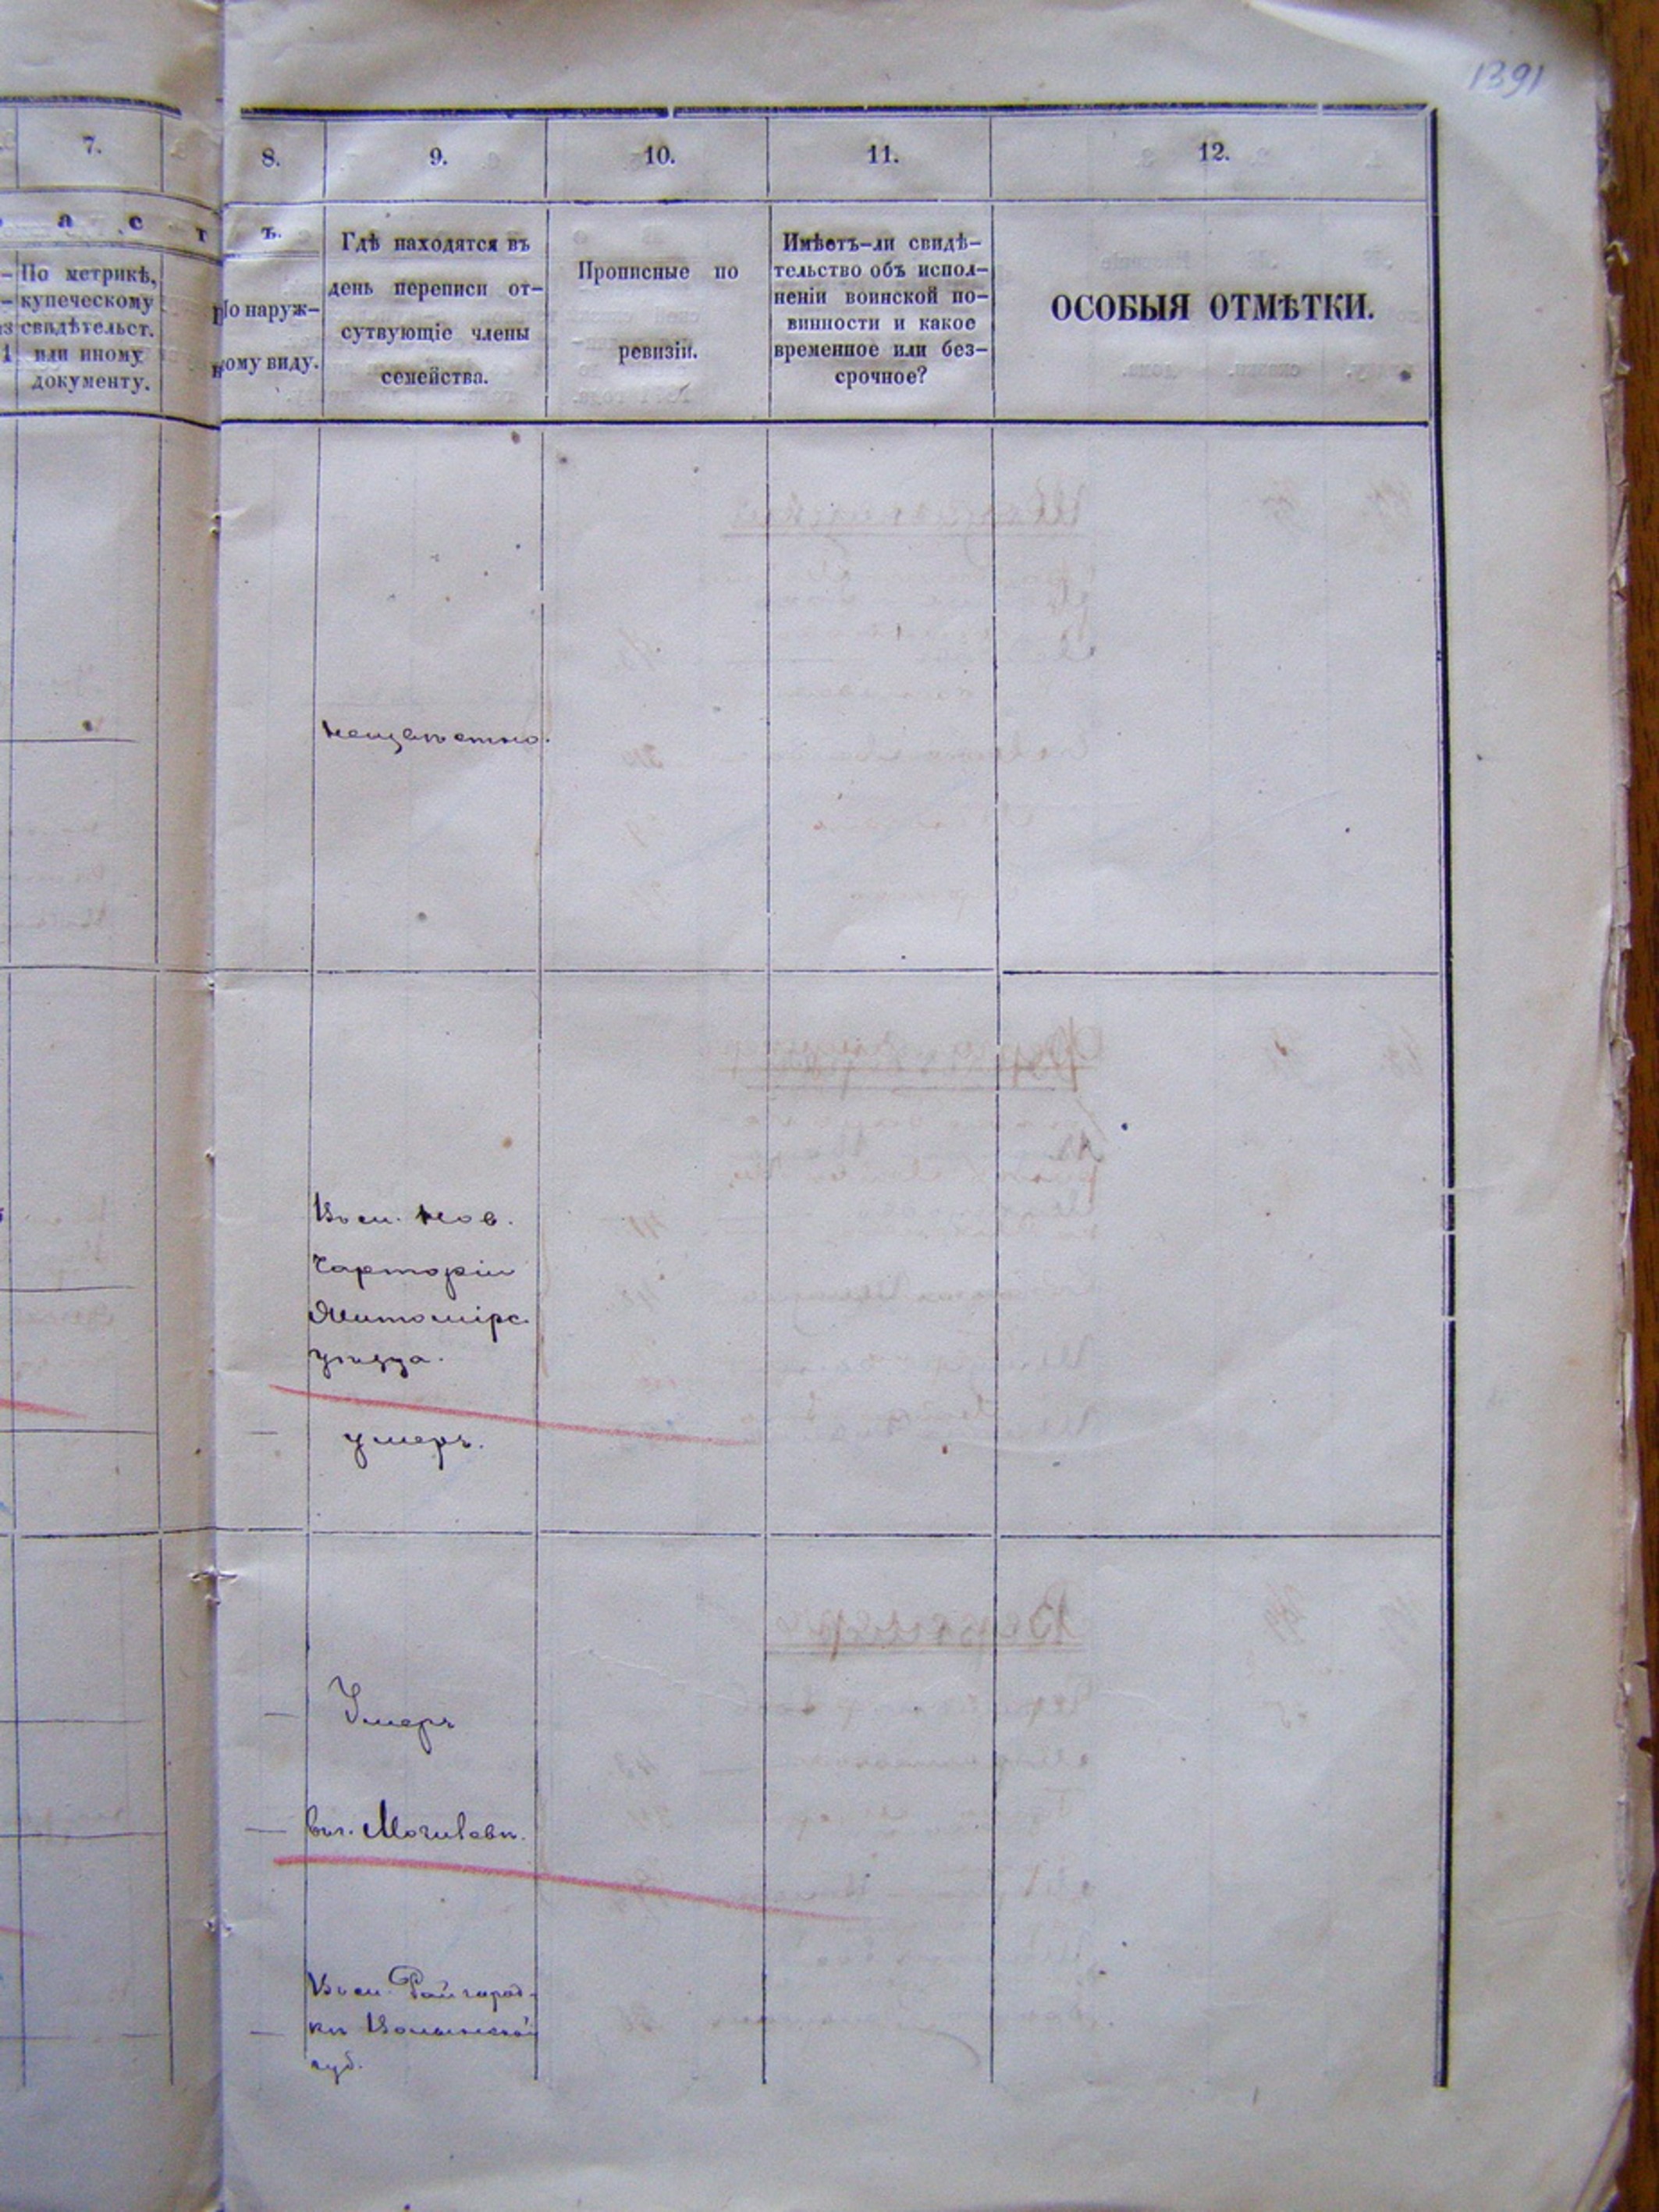 1391
7.
8.
9.
10.
11.
12.
а с т
ъ.
По метрикѣ,
купеческому
свидѣтельст.
или иному
документу.
По наруж-
ному виду.
Гдѣ находятся въ
день переписи от-
сутвующіе члены
семейства.
Прописные по
ревизіи.
Имѣетъ-ли свидѣ-
тельство объ испол-
неніи воинской по-
винности и какое
временное или без-
срочное?
ОСОБЫЯ ОТМѢТКИ.
неизвѣстно.
Въ м. Нов.
Чарторіи
Житомірс.
уѣзда.
умеръ.
Умеръ
въ г. Могилевѣ.
Въ м. Райгород-
кѣ Волынской
губ.